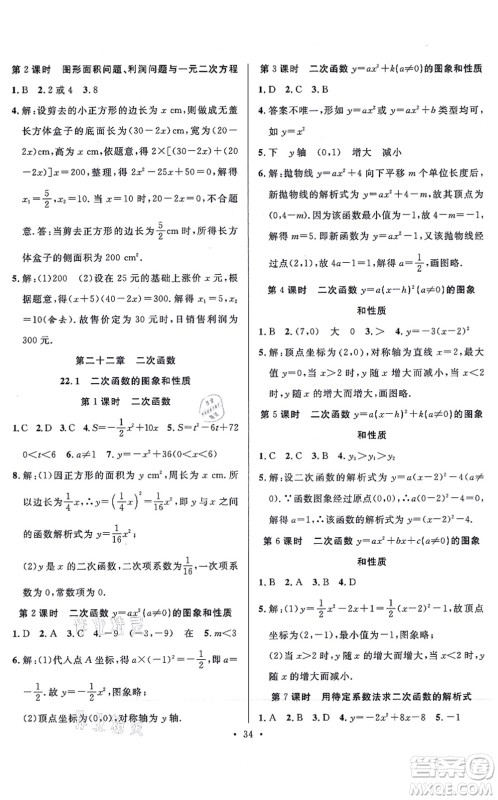 第2课时 图形面积问题、利润问题与一元二次方程
1.B 2.2或4 3.8
4.解:设剪去的小正方形的边长为 x cm,则做成无盖
长方体盒子的底面长为(30-2x)cm,宽为(20-
2x)cm,高为 x cm,依题意,得 2×[(30-2x)+(20-
2x)]x=200,整理,得 2x²-25x+50=0,解得
x₁=5/2,x₂=10.当 x=10 时,20-2x=0,不合题意,舍
去.答:当剪去正方形的边长为 5/2 cm 时,所得长方
体盒子的侧面积为 200 cm².
5.解:(1)200 (2)设在 25 元的基础上涨价 x 元,根
据题意,得(x+5)(40-2x)=300.解得 x₁=5,x₂=
10(舍去).故售价定为 30 元时,日销售利润为
300 元.
第二十二章 二次函数
22.1 二次函数的图象和性质
第1课时 二次函数
1.C 2.C 3.B 4.y=-1/2x²+10x 5.s=2t²-6t+72
0<t<6 6.a≠1 7.m=-2
8.解:(1)因为正方形的面积为 y cm²,周长为 x cm,所
以边长为 1/4x,∴y=(1/4x)²=1/16x²,∴y 与 x 之间
的函数解析式为 y=1/16x²;
(2)y 是 x 的二次函数,二次项系数为 1/16,一次项系
数为 0,常数项为 0.
第2课时 二次函数 y=ax²(a≠0)的图象和性质
1.D 2.B 3.A 4.D 5.m<3
6.解:(1)代入点 A(-1,-1/2),得 -1/2=a×(-1)²,
a=-1/2;
(2)顶点坐标为(0,0),对称轴为 y 轴.
第3课时 二次函数 y=ax²+k(a≠0)的图象和性质
1.D 2.C 3.A
4.答案不唯一,形如 y=ax²+c 或 y=ax²+bx 类型均可
5.下 y轴 (0,1) 增大 减小
6.解:抛物线 y=ax²+4 向下平移 m 个单位长度后,
新抛物线的解析式为 y=ax²+4-m,其顶点为
(0,4-m).因为顶点为(0,1),所以 4-m=1,解得
m=3,所以抛物线的解析式为 y=ax²+1.因为抛物线
经过点(2,2),所以 4a+1=2,解得 a=1/4.画图略.
第4课时 二次函数 y=a(x-h)²(a≠0)的图象
和性质
1.B 2.(7,0) 大 0 4.y=-3(x-2)²
5.解:顶点坐标为(2,0),对称轴为直线 x=2.画图略,
当 x>2 时,y 随 x 的增大而减小;当 x<2 时,y 随
x 的增大而增大,画图略.
第5课时 二次函数 y=a(x-h)²+k(a≠0)的图象
和性质
1.C 2.A 3.B 4.y₃>y₁>y₂
5.解:设二次函数的解析式为 y=a(x-2)²-1(a≠
0).∵函数图象经过点(0,1),∴4a-1=1,∴a=1/2,
∴该二次函数的解析式为 y=1/2(x-2)²-1.
第6课时 二次函数 y=ax²+bx+c(a≠0)的图象
和性质
1.B 2.A 3.B 4.D
5.解:(1)y=1/2x²-x-1/2=1/2(x-1)²-1,故顶点
坐标为(1,-1),对称轴为直线 x=1;
(2)当 x>1 时,y 随 x 的增大而增大;当 x<1 时,y
随 x 的增大而减小.
第7课时 用待定系数法求二次函数的解析式
1.A 2.C 3.A 4.y=-2x²+8x-8 5.-1
·34·
答案圈
MXQE.COM